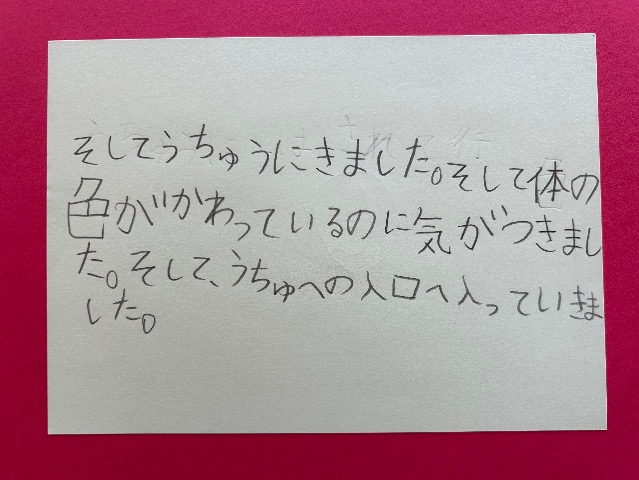 そしてうちゅうにきました。そして体の
色がかわっているのに気がつきまし
た。そして、うちゅへの入口へ入っていきま
した。